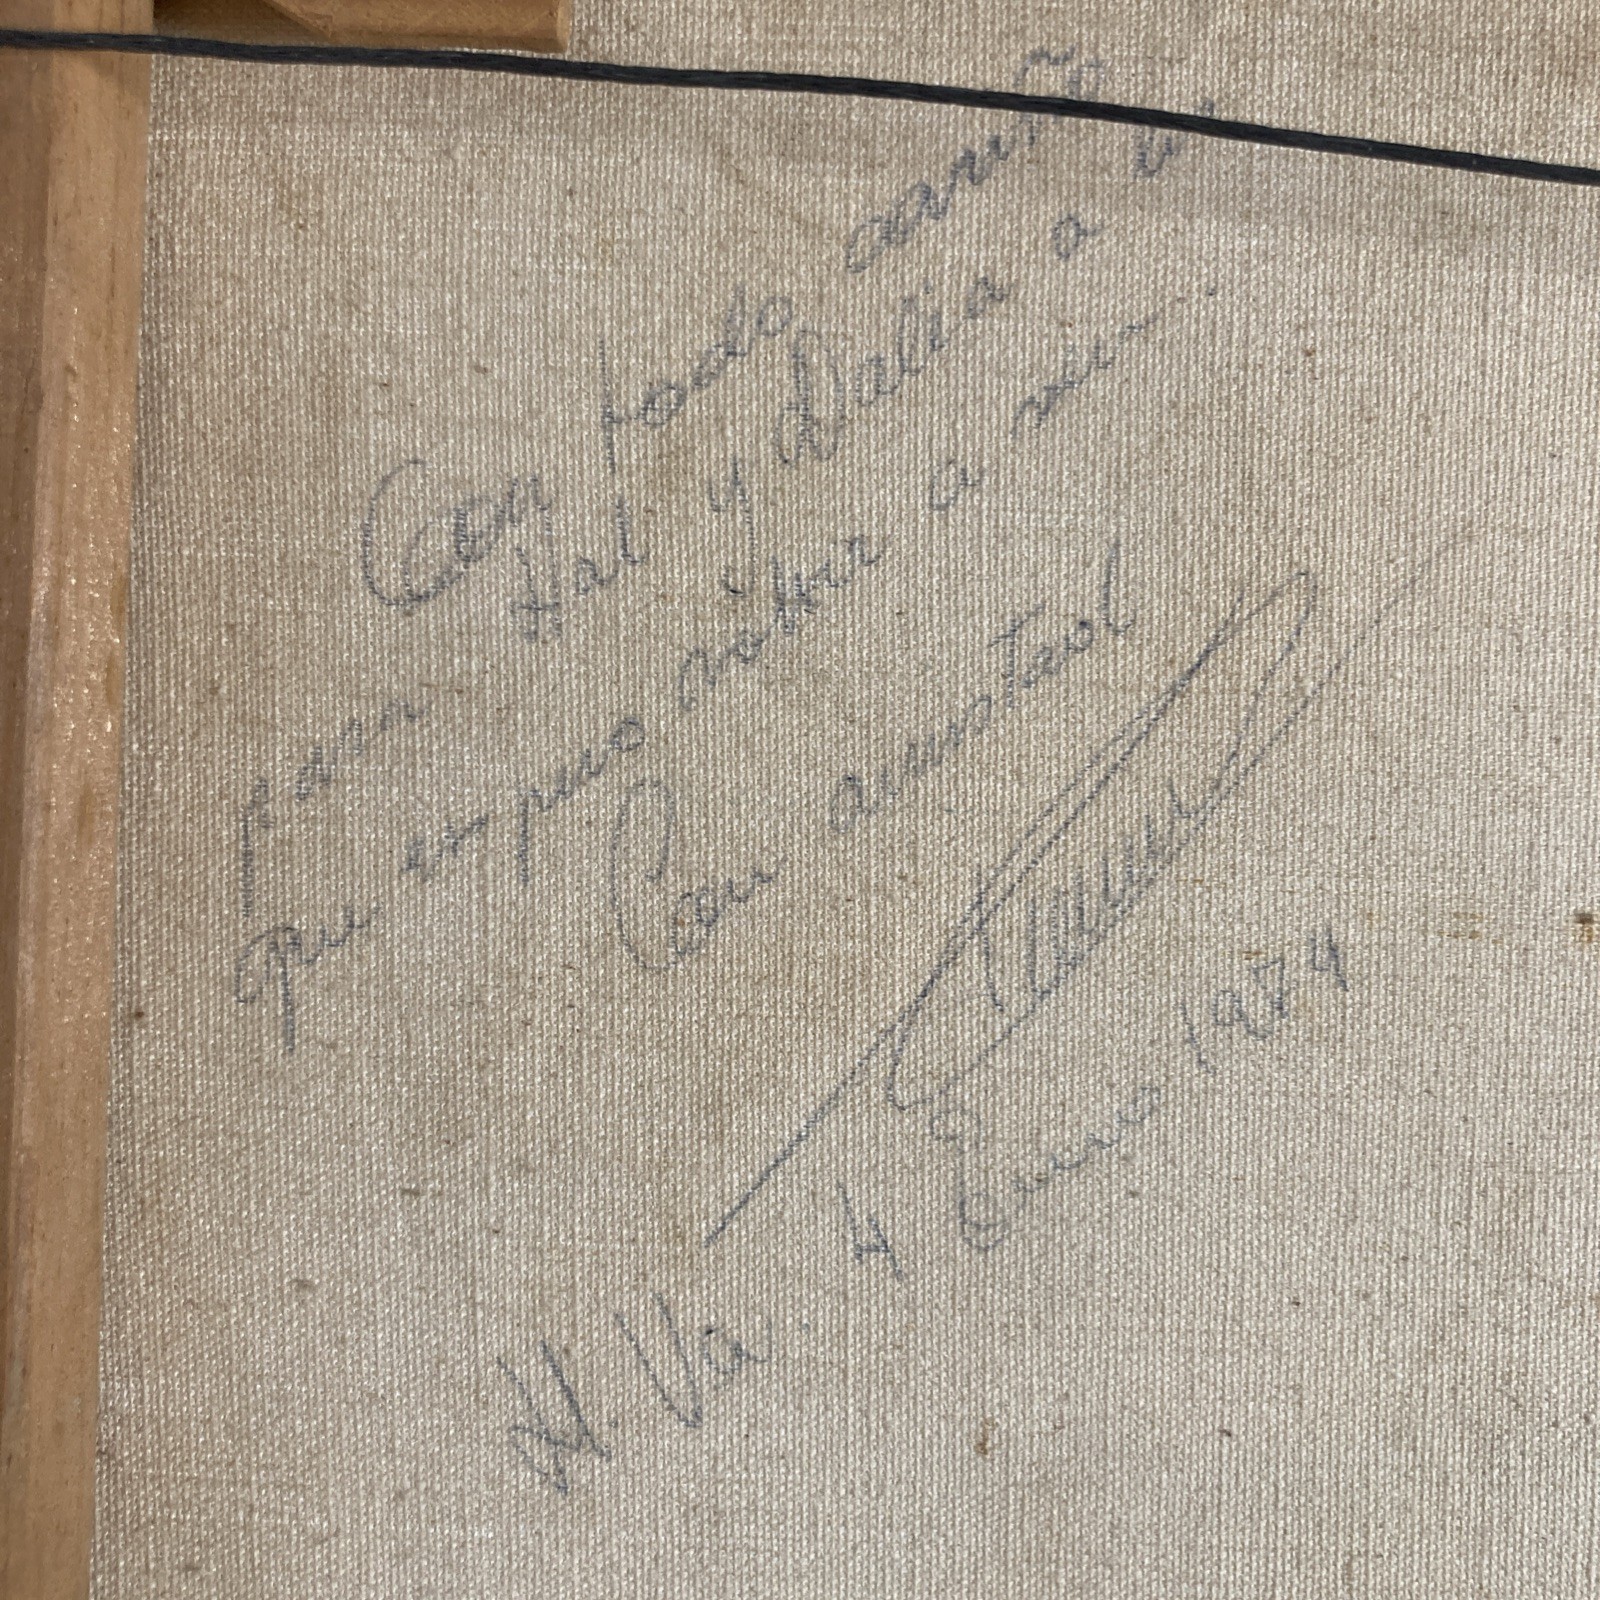 Con todo cariño
Para Hal y Dalia a
que espero volver a
Con amistad
H. Va. 4 Enero 1974